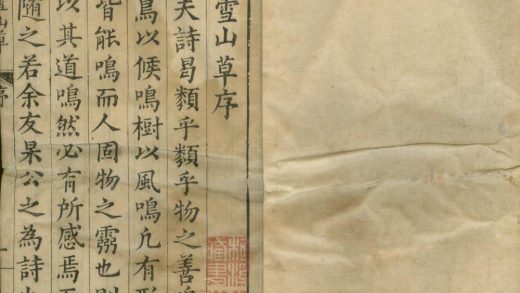 雪山草序
夫詩曷類乎類乎物之善鳴
鳥以候鳴樹以風鳴凡有形
皆能鳴而人固物之靈也則
以其道鳴然必有所感焉而
隨之若余友杲公之為詩也
雪山草 序 一